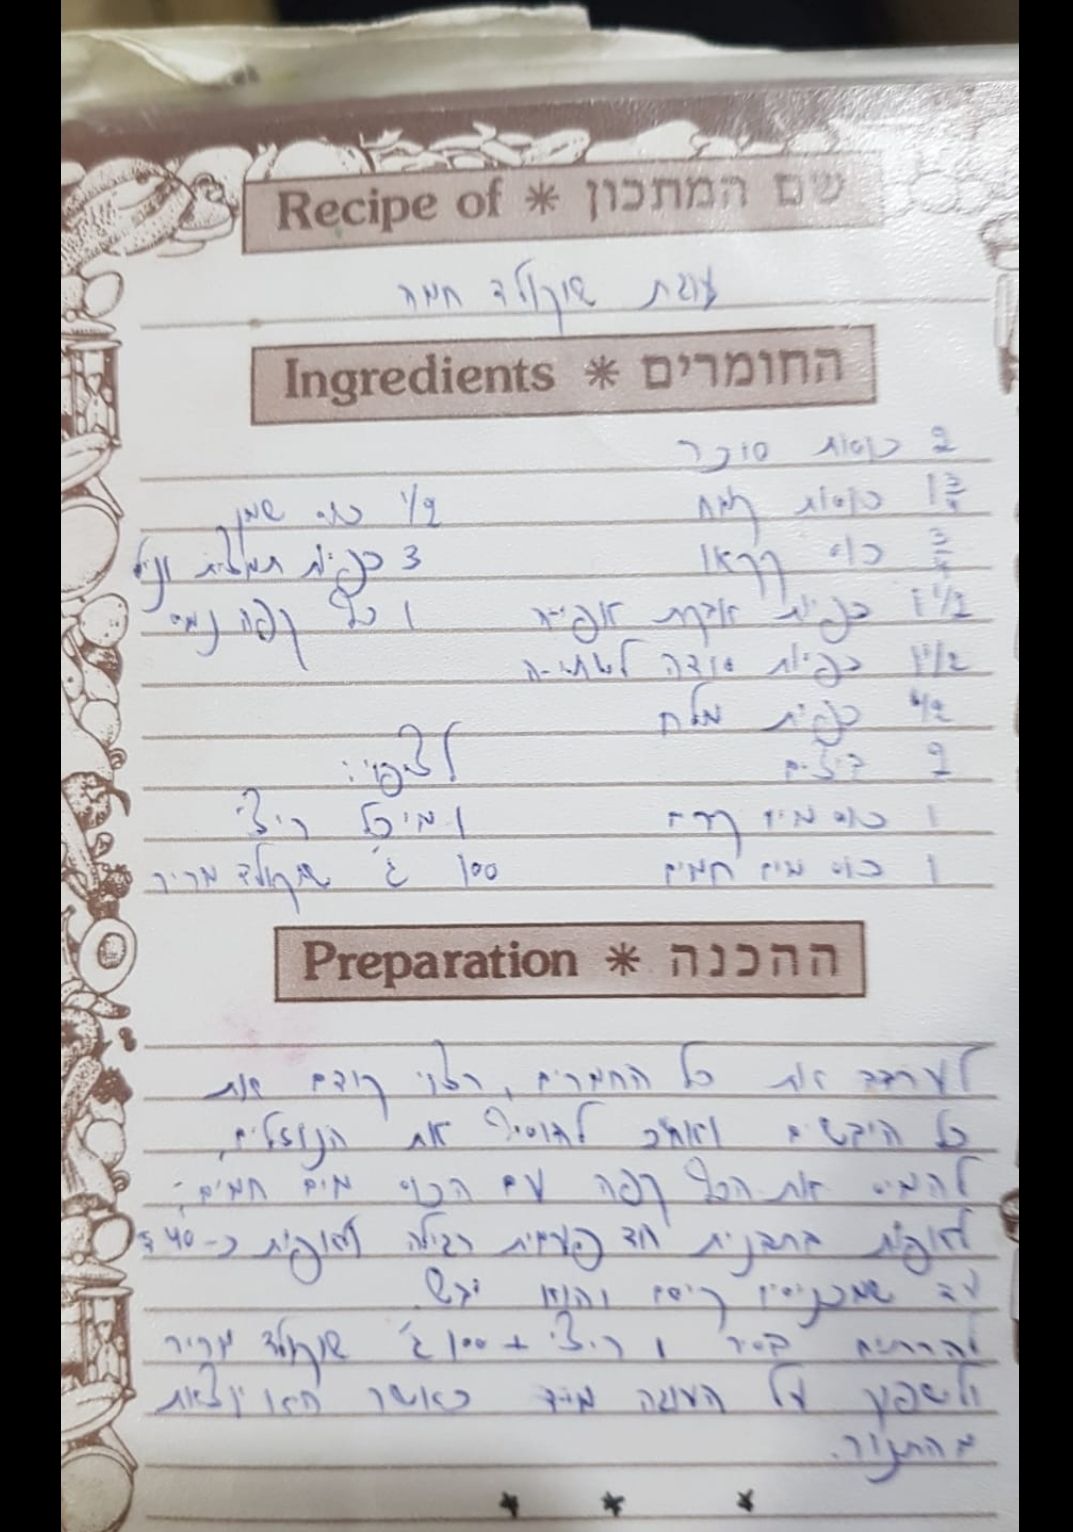 Recipe of * שם המתכון
עוגת שוקולד חמה
Ingredients * החומרים
2 כוסות סוכר
1 3/4 כוסות קמח
1/2 כוס שמן
3/4 כוס קקאו
3 כפיות תמצית וניל
1 1/2 כפיות אבקת אפייה
1 כף קפה נמס
1 1/2 כפיות סודה לשתייה
1/2 כפית מלח
לציפוי:
2 ביצים
1 כוס מיץ קדם
1 מיכל ריצ'
1 כוס מים חמים
100 ג' שוקולד מריר
Preparation * ההכנה
לערבב את כל החמרים, רצוי קודם את
כל היבשים ואח"כ להוסיף את הנוזלים,
להמיס את הכף קפה עם הכוס מים חמים;
לאפות בתבנית חד פעמית רגילה לאפות כ-40 ד'
עד שמכניסים קיסם והוא יבש.
להרתיח בסיר 1 ריצ' + 100 ג' שוקולד מריר
ולשפוך על העוגה מיד כאשר יוצאת
מהתנור.